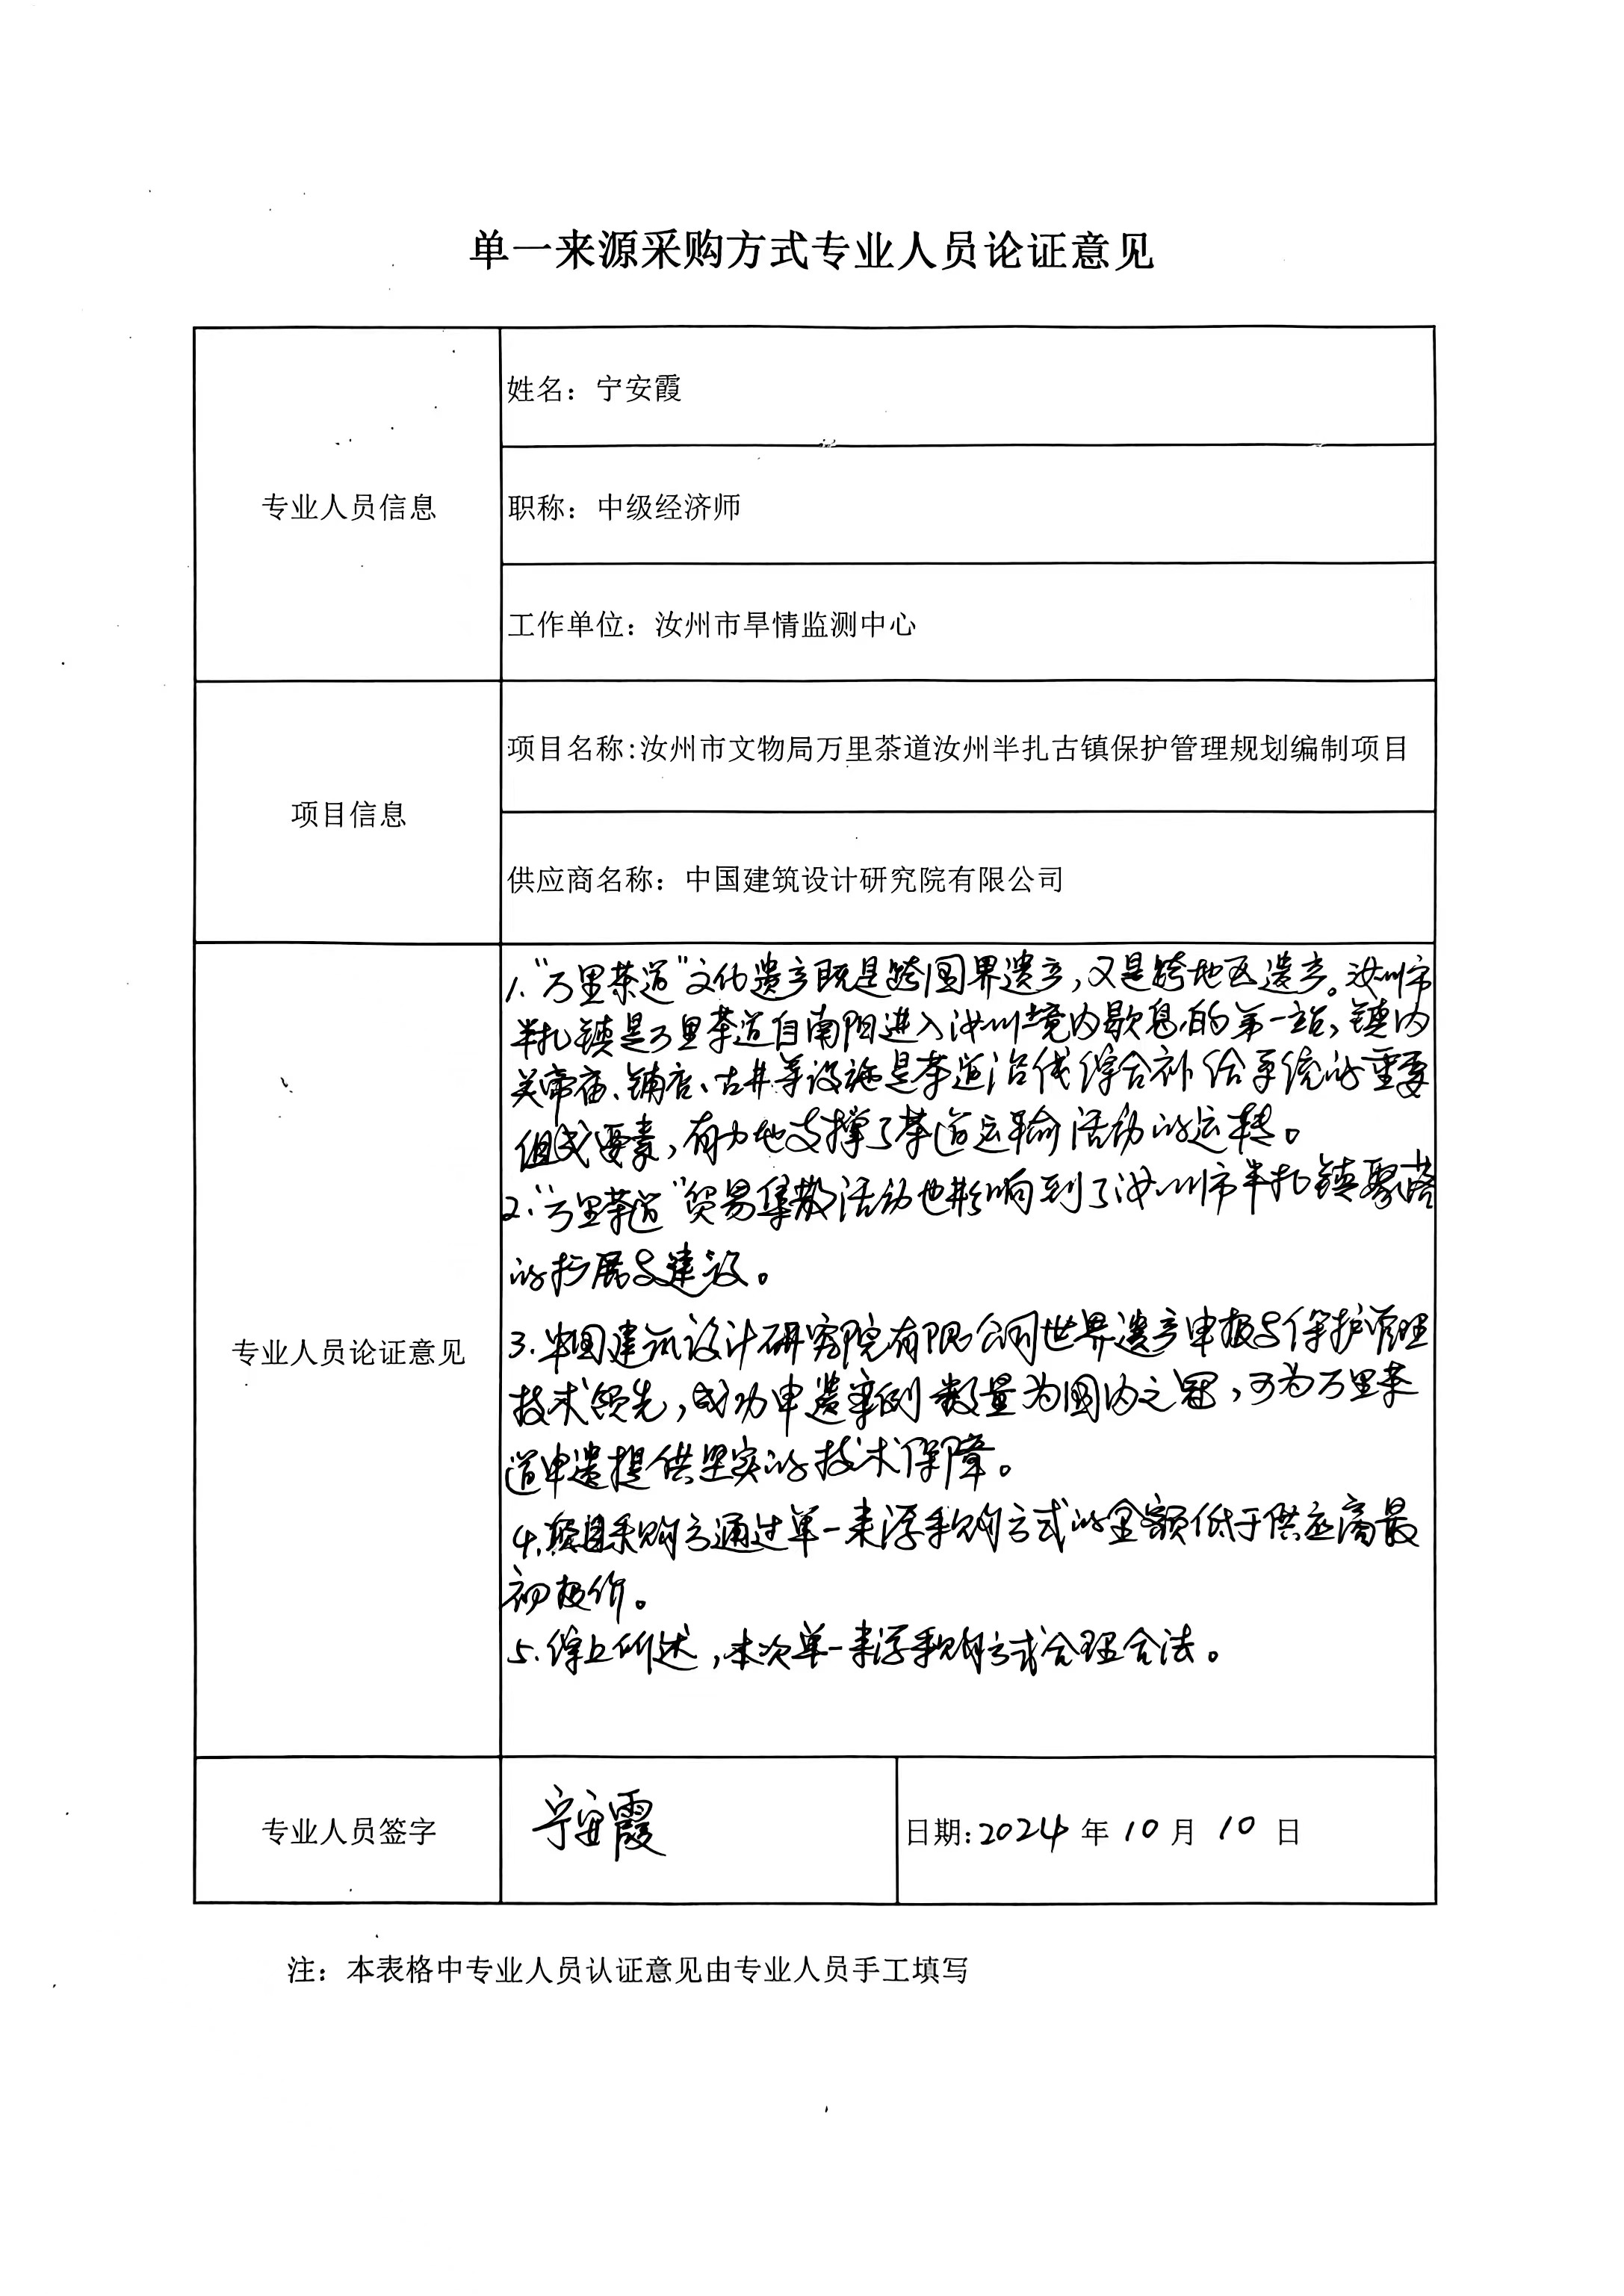 单一来源采购方式专业人员论证意见
专业人员信息
姓名：宁安霞
职称：中级经济师
工作单位：汝州市旱情监测中心
项目信息
项目名称:汝州市文物局万里茶道汝州半扎古镇保护管理规划编制项目
供应商名称：中国建筑设计研究院有限公司
专业人员论证意见
1.“万里茶道”文化遗产既是跨国界遗产,又是跨地区遗产。汝州市
半扎镇是万里茶道自南阳进入汝州境内歇息的第一站,镇内
关帝庙、铺店、古井等设施是茶道沿线综合补给系统的重要
组成要素,有力地支撑了茶道运输活动的运转。
2.“万里茶道”贸易集散活动也影响到了汝州市半扎镇聚落
的扩展与建设。
3.中国建筑设计研究院有限公司世界遗产申报与保护管理
技术领先,成功申遗案例数量为国内之冠,可为万里茶
道申遗提供坚实的技术保障。
4.项目采购方通过单一来源采购方式的金额低于供应商最
初报价。
5.综上所述,本次单一来源采购方式合理合法。
专业人员签字
宁安霞
日期:2024年10月10日
注：本表格中专业人员认证意见由专业人员手工填写